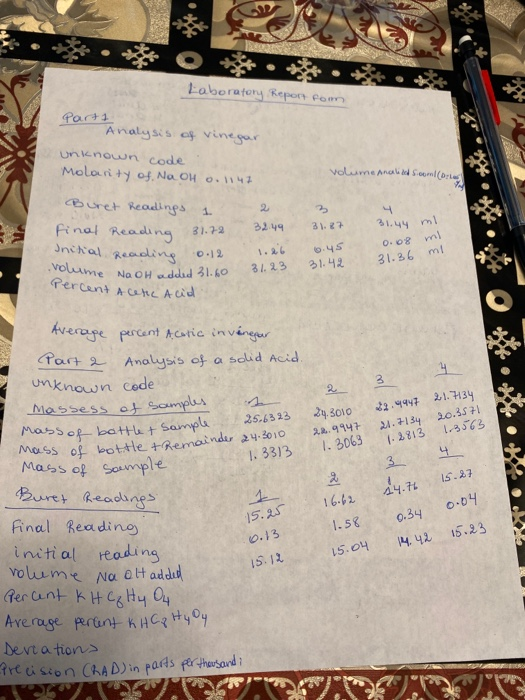 Laboratory Report Form
Part 1
Analysis of vinegar
unknown code
Molarity of NaOH 0.1142
Volume Analyzed 5.00ml
Buret Readings 1 2 3 4
Final Reading 31.72 32.49 31.87 31.44 ml
Initial Reading 0.12 1.26 0.45 0.08 ml
Volume NaOH added 31.60 31.23 31.42 31.36 ml
Percent Acetic Acid
Average percent Acetic in vinegar
Part 2 Analysis of a solid Acid
unknown code
Massess of samples 1 2 3 4
Mass of bottle + sample 25.6323 24.3010 22.9947 21.7134
Mass of bottle + Remainder 24.3010 22.9947 21.7134 20.3571
Mass of sample 1.3313 1.3063 1.2813 1.3563
Buret Readings 1 2 3 4
Final Reading 15.25 16.62 14.76 15.27
initial reading 0.13 1.58 0.34 0.04
volume NaOH added 15.12 15.04 14.42 15.23
Percent KHC8H4O4
Average percent KHC8H4O4
Deviations
Precision (RAD) in parts per thousand;